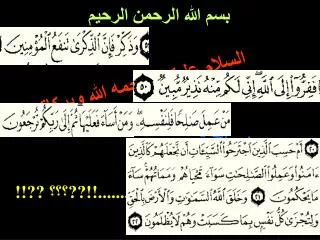 بسم الله الرحمن الرحيم
وَذَكِّرْ فَإِنَّ الذِّكْرَىٰ تَنفَعُ الْمُؤْمِنِينَ
السلام الله و
فَفِرُّوا إِلَى اللَّهِ إِنِّي لَكُم مِّنْهُ نَذِيرٌ مُّبِينٌ ٥٠
مَنْ عَمِلَ صَالِحًا فَلِنَفْسِهِ وَمَنْ أَسَاءَ فَعَلَيْهَا ثُمَّ إِلَىٰ رَبِّكُمْ تُرْجَعُونَ
٢٠ أَمْ حَسِبَ الَّذِينَ اجْتَرَحُوا السَّيِّئَاتِ أَن نَّجْعَلَهُمْ كَالَّذِينَ
آمَنُوا وَعَمِلُوا الصَّالِحَاتِ سَوَاءً مَّحْيَاهُمْ وَمَمَاتُهُمْ سَاءَ
مَا يَحْكُمُونَ ٢١ وَخَلَقَ اللَّهُ السَّمَاوَاتِ وَالْأَرْضَ بِالْحَقِّ
وَلِتُجْزَىٰ كُلُّ نَفْسٍ بِمَا كَسَبَتْ وَهُمْ لَا يُظْلَمُونَ ٢٢
!!؟؟ ؟؟؟؟!!.......